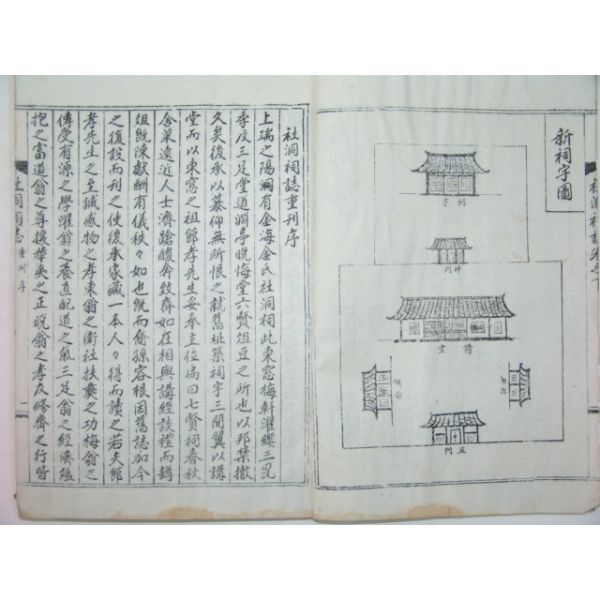 新祠宇圖
祠宇
神門
講堂
正門
社洞祠誌重刋序
上瑞之陽洞有金海金氏社洞祠此東窓梅軒濯纓三昆
季及三足堂道淵亭晩悔堂六賢俎豆之所也以邦禁撤
久矣後承以慕仰無所恨之就舊址築祠宇三間翼以講
堂而以東窓之祖節孝先生妥奉主位扁曰七賢祠春秋
舍菜遠近人士濟蹌駿奔致齊如在相與講經談禮而罇
俎旣陳獻酬有儀秩々如也旣而裔孫容根因舊誌加今
之復設而刋之使後承家藏一本人々得而讀之若夫節
孝先生之至誠感物之孝東翁之衛社扶彛之功梅翁之
傳受有源之學濯翁之養直配道之氣三足翁之經濟
抱之富道翁之尊攘華夷之正晩翁之孝友脩齊之行皆
社洞祠誌 重刋序 一